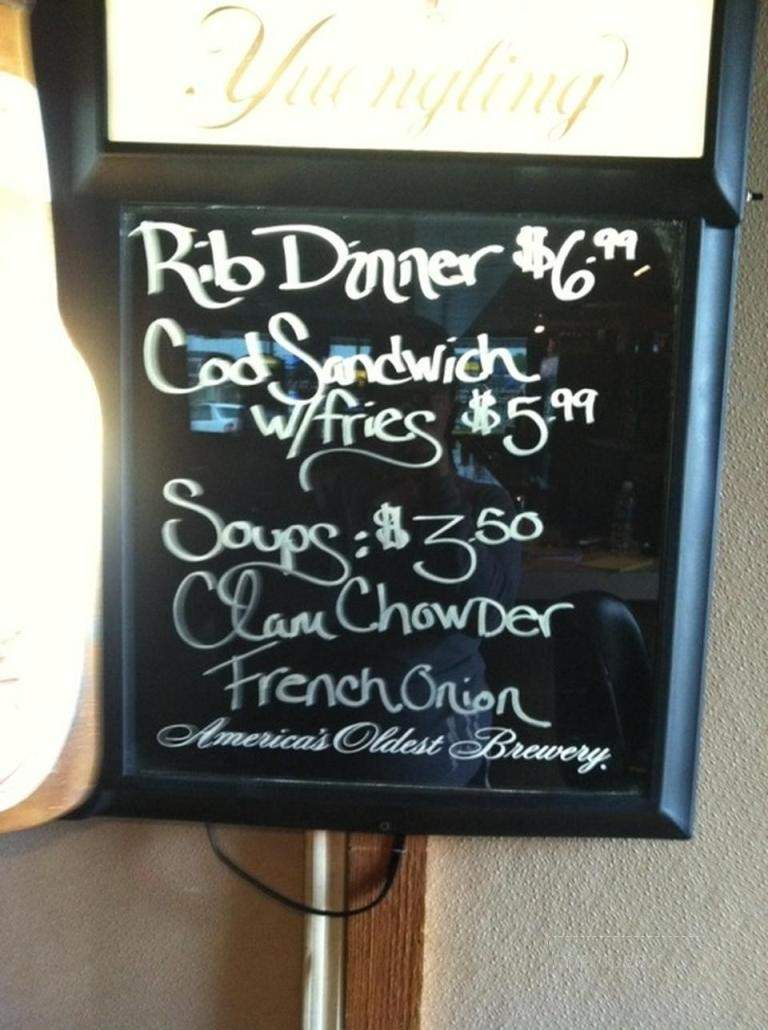 Yuengling
Rib Dinner $6.99
Cod Sandwich
w/fries $5.99
Soups: $3.50
Clam Chowder
French Onion
America's Oldest Brewery.